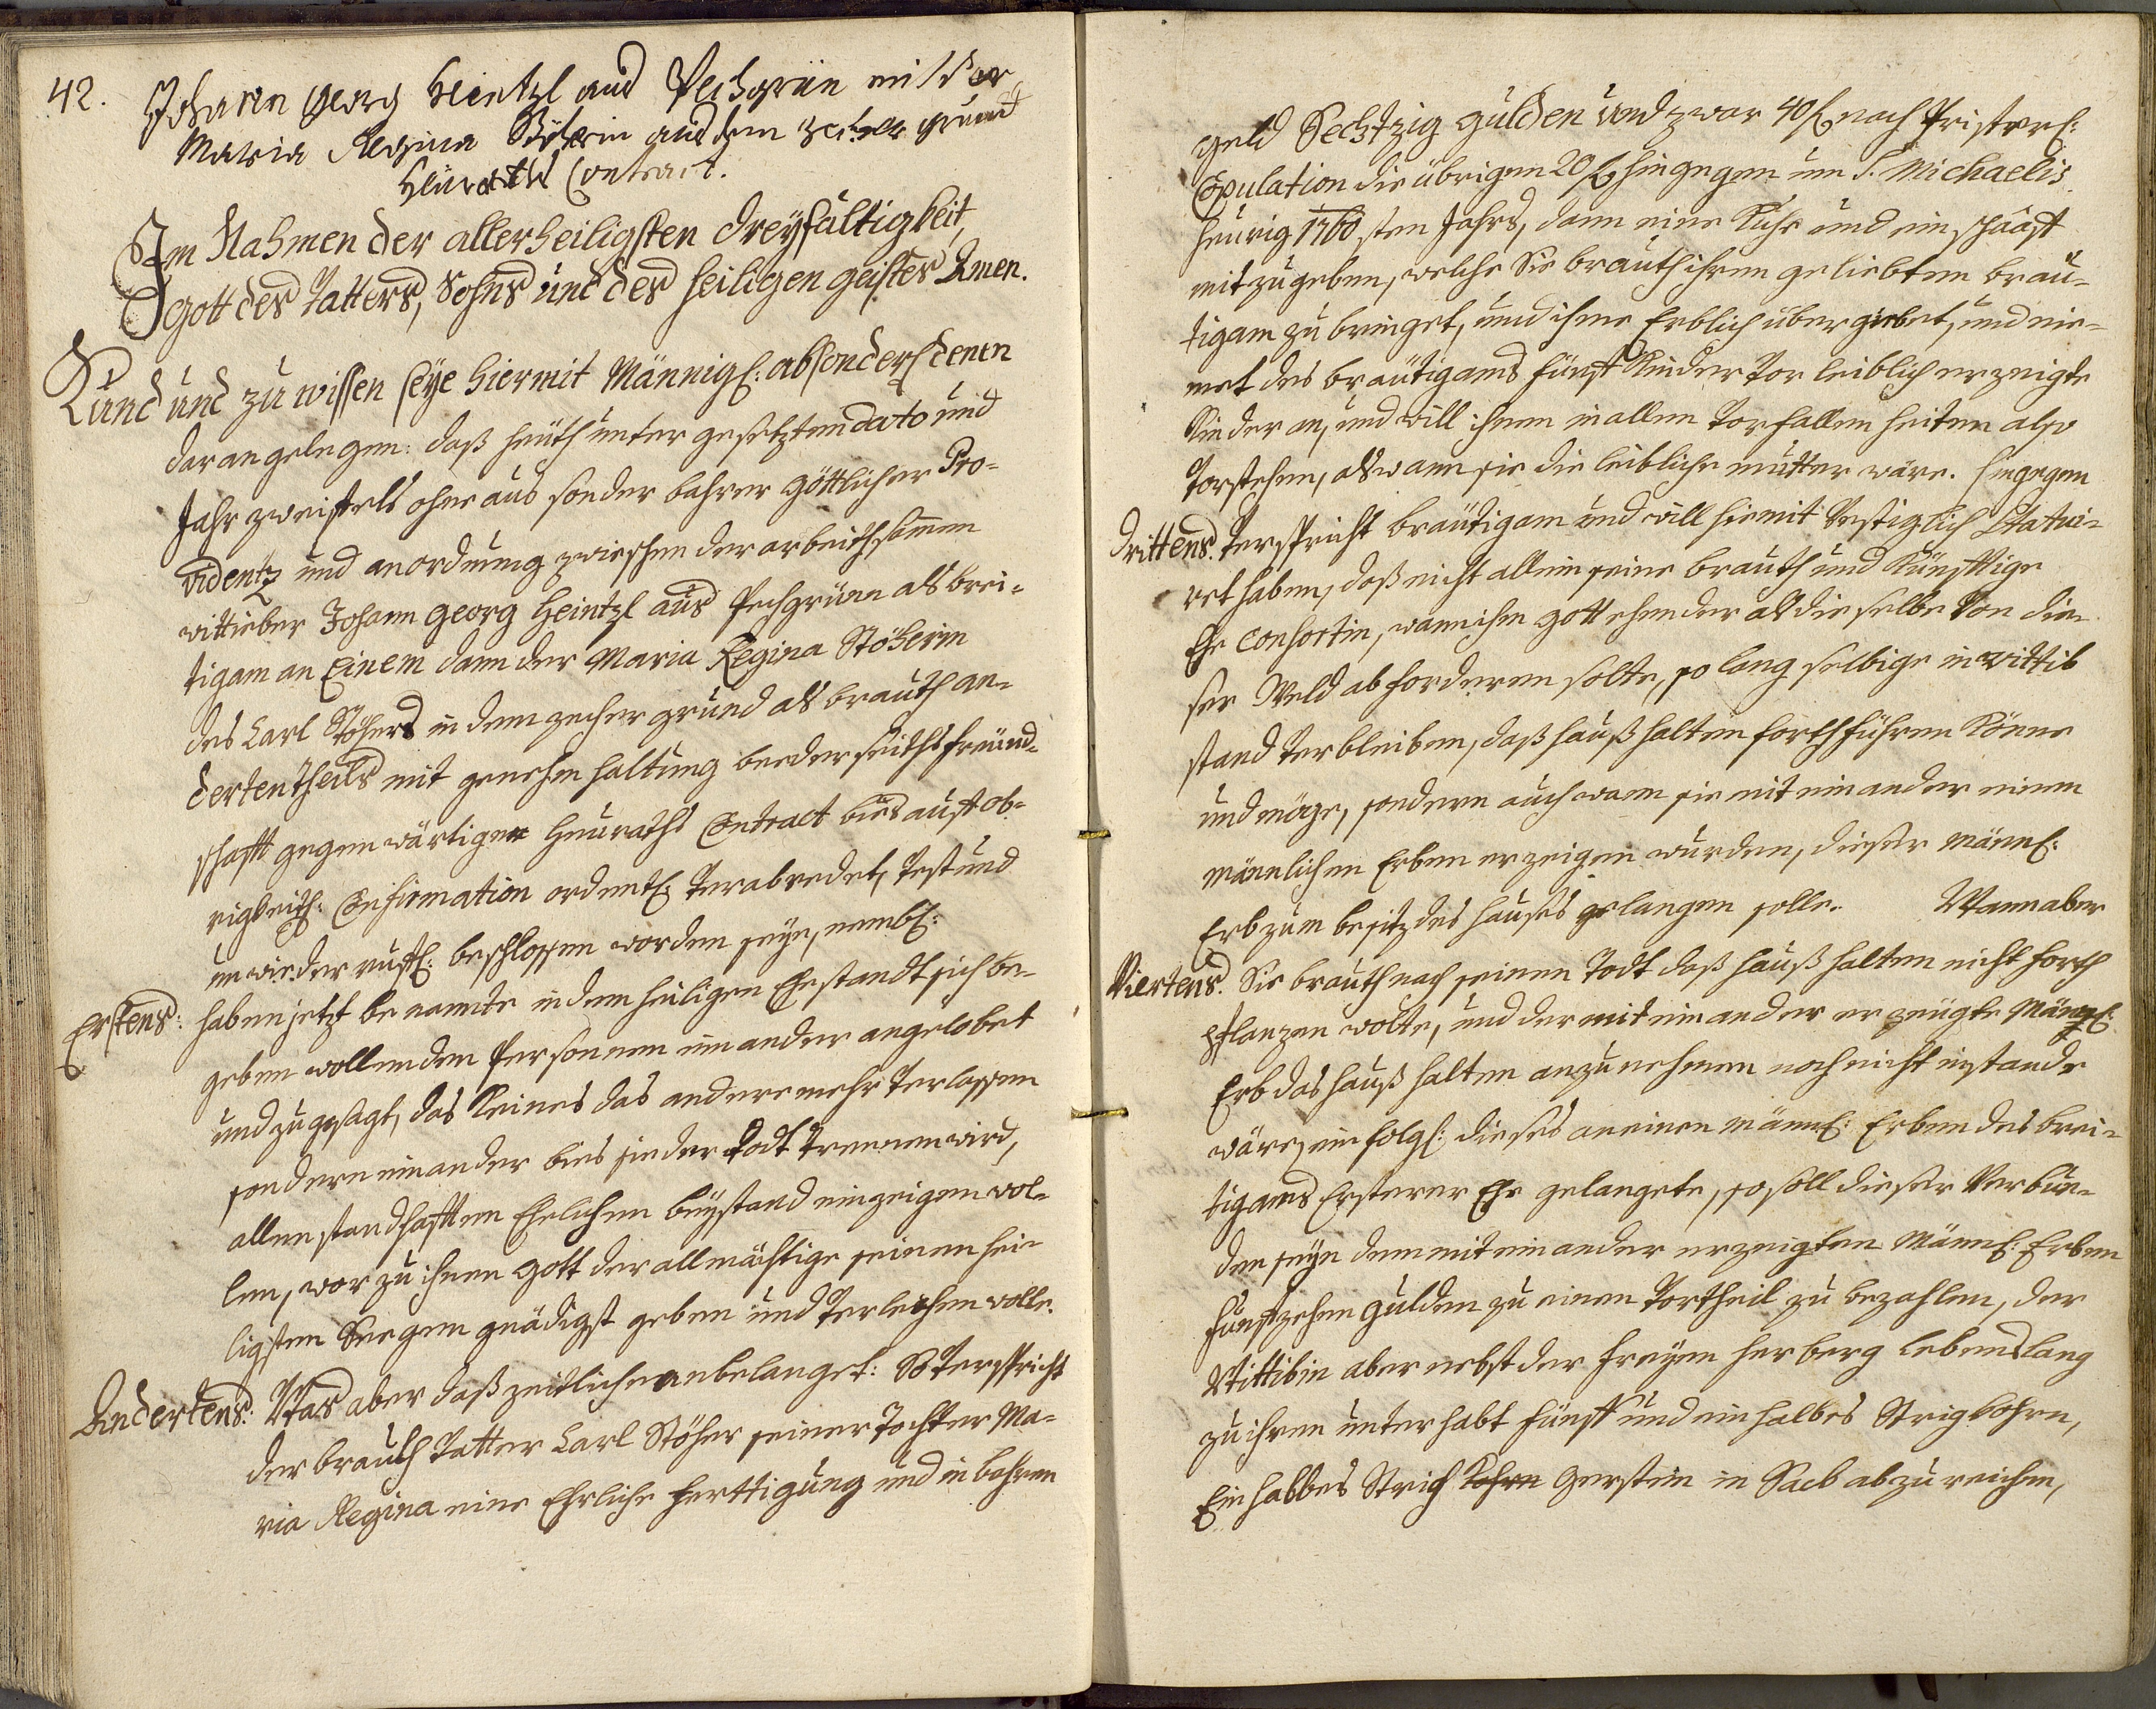 42.
Johann Georg Heintzl aus Pechgrün mit der
Maria Regina Stöherin aus dem Zecher grund
Heuraths Contract.
Im Nahmen der allerheiligsten Dreyfältigkeit,
Gott des Vatters, Sohns und des heiligen geistes Amen.
Kund und zu wissen seye hiermit Männigl: absonderl denen
daran gelegen: daß heuth unter gesetzten dato und
Jahr zweifels ohne aus sonder bahrer göttlicher Pro-
videntz und anordnung zwischen der arbeithsamen
wittieber Johann Georg Heintzl aus Pechgrün als brei-
tigam an Einem dann der Maria Regina Stöherin
des Carl Stöhers in dem zecher grund als brauth an-
dertentheils mit genehm haltung beederseiths freund-
schafft gegenwärtiger Heuraths Contract bies auf ob-
rigkeitl: Confirmation ordentl: verabredet, Vest und
unwieder rufl: beschlossen worden seye, nembl:
Erstens: haben jetzt benannte in dem heiligen Ehestandt sich be-
geben wollenden Personnen einander angelobet
und zugesagt, das keines das andere mehr verlassen
sondern einander bies sie der Todt trennen wird,
allen standhafften Ehelichen beystand einzeigen wol-
len, worzu ihnen Gott der allmächtige seinen hei-
ligsten Seegen gnädigst geben und verleihen wolle.
Andertens: Was aber daß zeitliche anbelanget: So verspricht
der brauth Vatter Carl Stöher seiner Tochter Ma-
ria Regina eine Ehrliche ferttigung und in bahren
geld Sechtzig gulden und zwar 40 f nach Pristerl:
Copulation die übrigen 20 f hingegen um S. Michaelis
heurig 1760sten Jahrs, dann eine Kuhe und ein schaaff
mitzugeben, welche Sie brauth ihren geliebten bräu-
tigam zu bringet, und ihme Erblich über giebet, und nie-
met des bräutigams fünff Kinder vor leiblich erzeigte
Kinder an, und will ihnen in allen vorfallenheiten also
vorstehen, als wann sie die leibliche mutter wäre. Hingegen
Drittens. verspricht bräutigam und will hiemit Vestiglich Statui-
ret haben, daß nicht allein seine brauth und künfftige
Ehe Consortin, wann ihm Gott ehender als dieselbe von die-
ser Weld abforderen solte, so lang selbige in wittib
stand verbleiben, daß hauß halten forthführen könne
und möge, sondern auch wann sie mit einander einen
männlichen Erben erzeigen wurden, dieser männl:
Erb zum besitz des hauses gelangen solle. Wann aber
Viertens. Sie brauth nach seinen Todt daß hauß halten nicht forth
pflanzen wolte, und der mit einander erzeugte Männl:
Erb das hauß halten anzunehmen noch nicht instande
wäre, einfolgl: dieses an einen männl: Erben des brei-
tigams Ersterer Ehe gelangete, so soll dieser Verbun-
den seye dem mit einander erzeigten Männl: Erben
funffzehen gulden zu einen Vortheil zu bezahlen, der
Wittibin aber nebst der freyen herberg lebenslang
zu ihren unterhalt fünff und ein halbes Strig kohrn,
Ein halbes Strich Kohrn Gersten in Sack abzureichen,